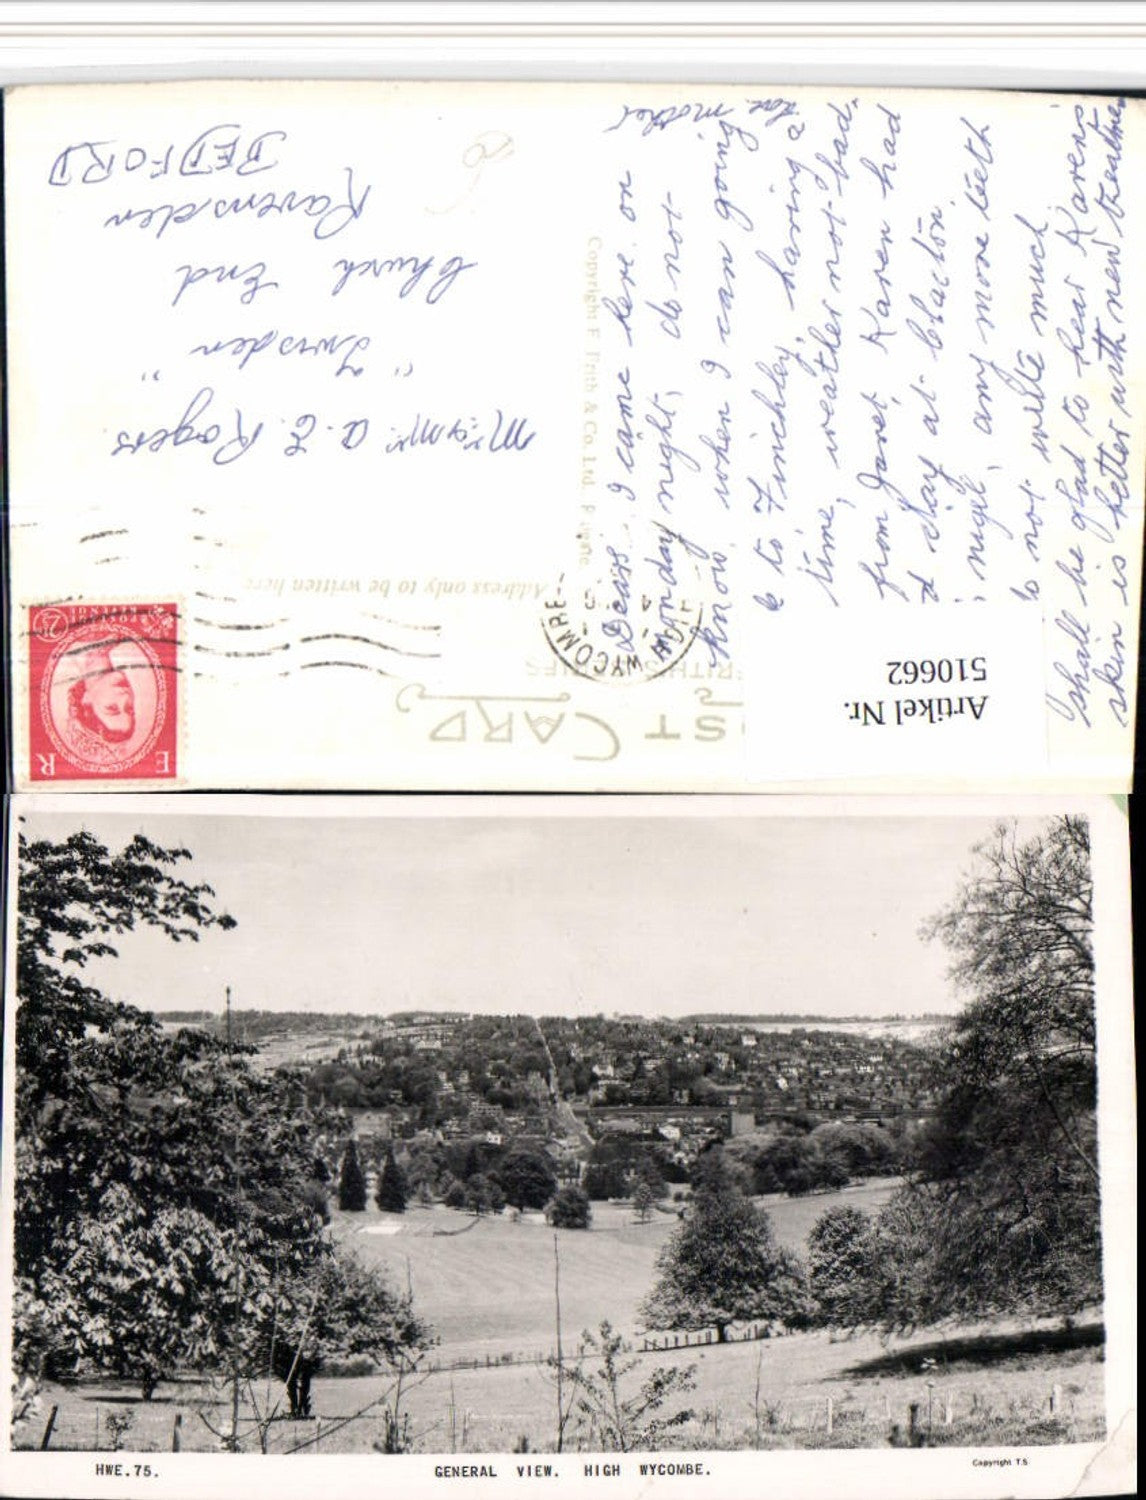 POST CARD
FRITH'S SERIES
Address only to be written here
Copyright F. Frith & Co. Ltd. Reigate.
HIGH WYCOMBE
E R
POSTAGE
2½
Artikel Nr.
510662
Mrs & Mr. A. E. Rogers
"Ivisden"
Church End
Ravensden
BEDFORD
Dears, I came here on
Monday night, do not
know when I can going
to Finchley, having a
time, weather not bad.
from Janet Karen had
a day at Clacton.
nigel, any more teeth
to not write much
shall be glad to hear Karens
skin is better with new treatment
love mother
HWE.75.
GENERAL VIEW. HIGH WYCOMBE.
Copyright T.S